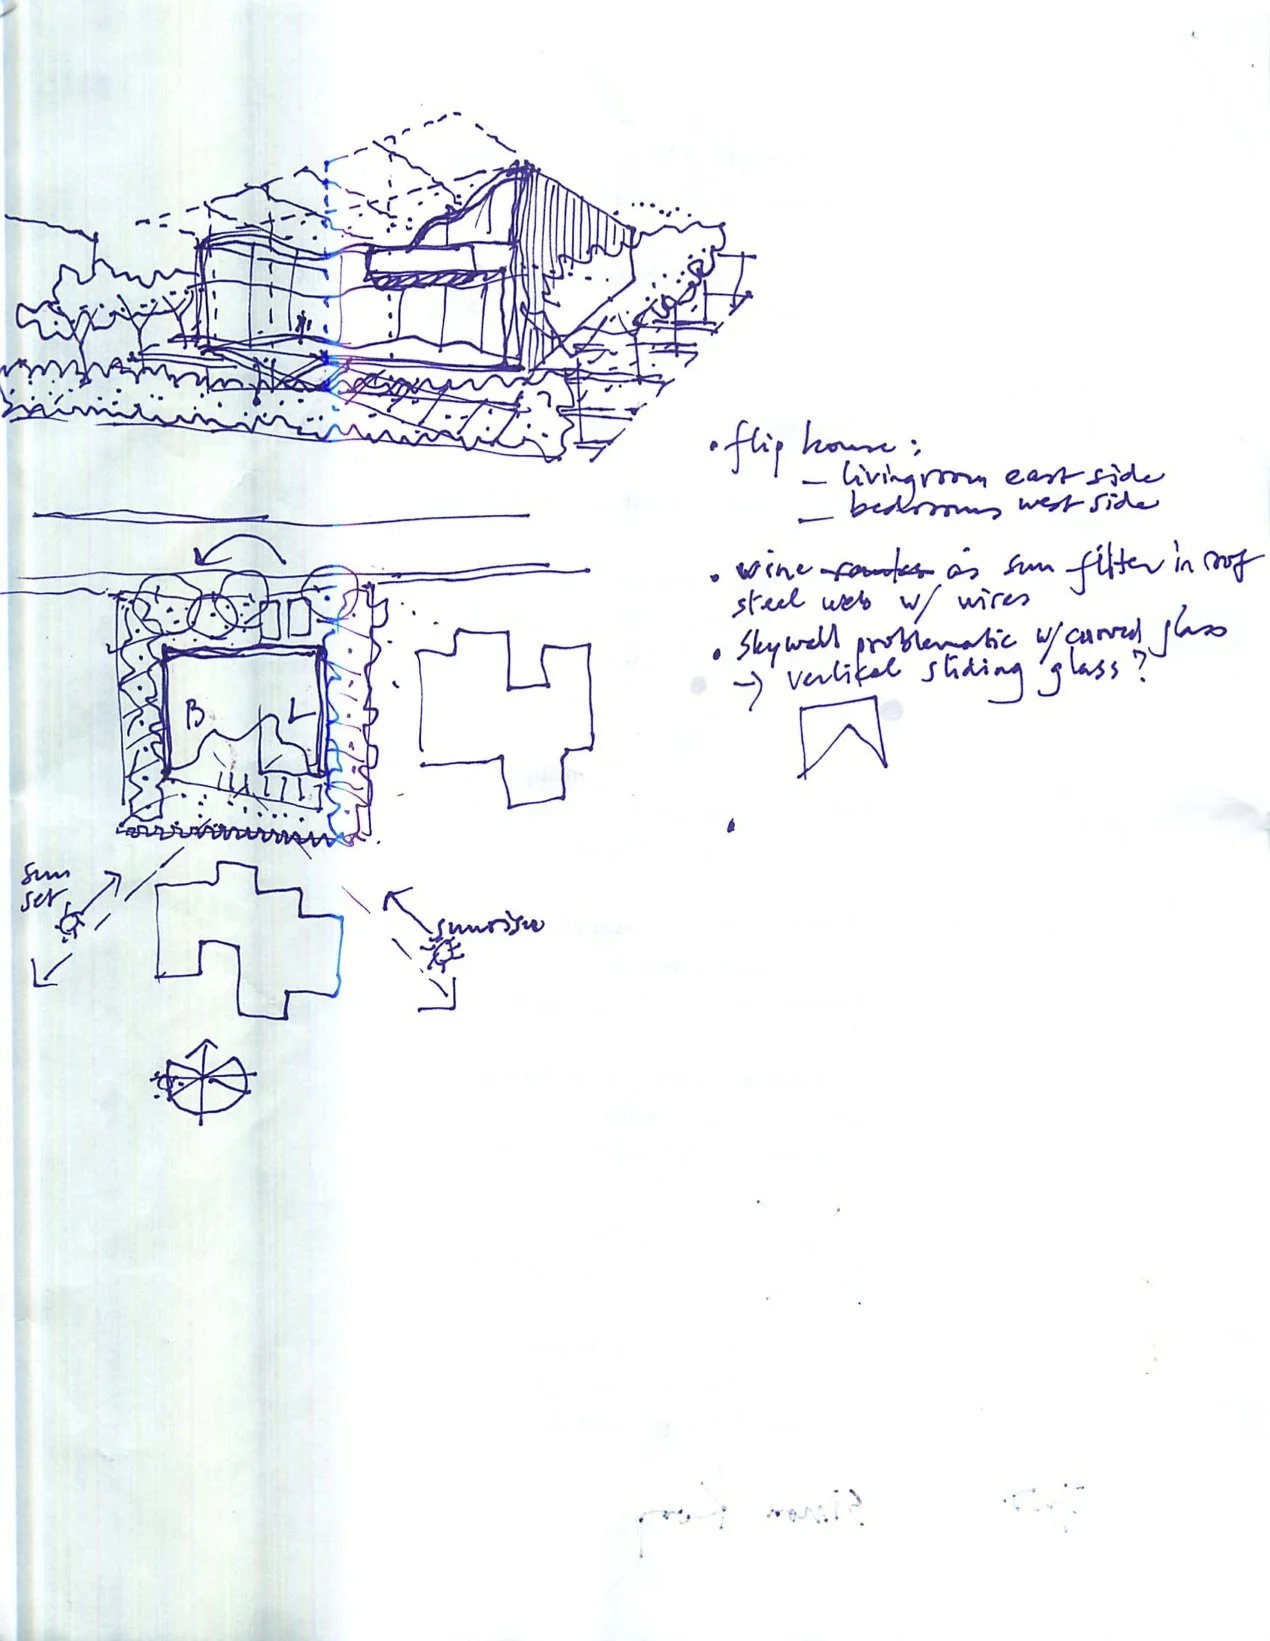 • flip house:
— livingroom east side
— bedrooms west side
• wine as sun filter in roof
steel web w/ wires
• Skywell problematic w/ curved glass
→ vertical sliding glass?
B L
sun
set
sunrise